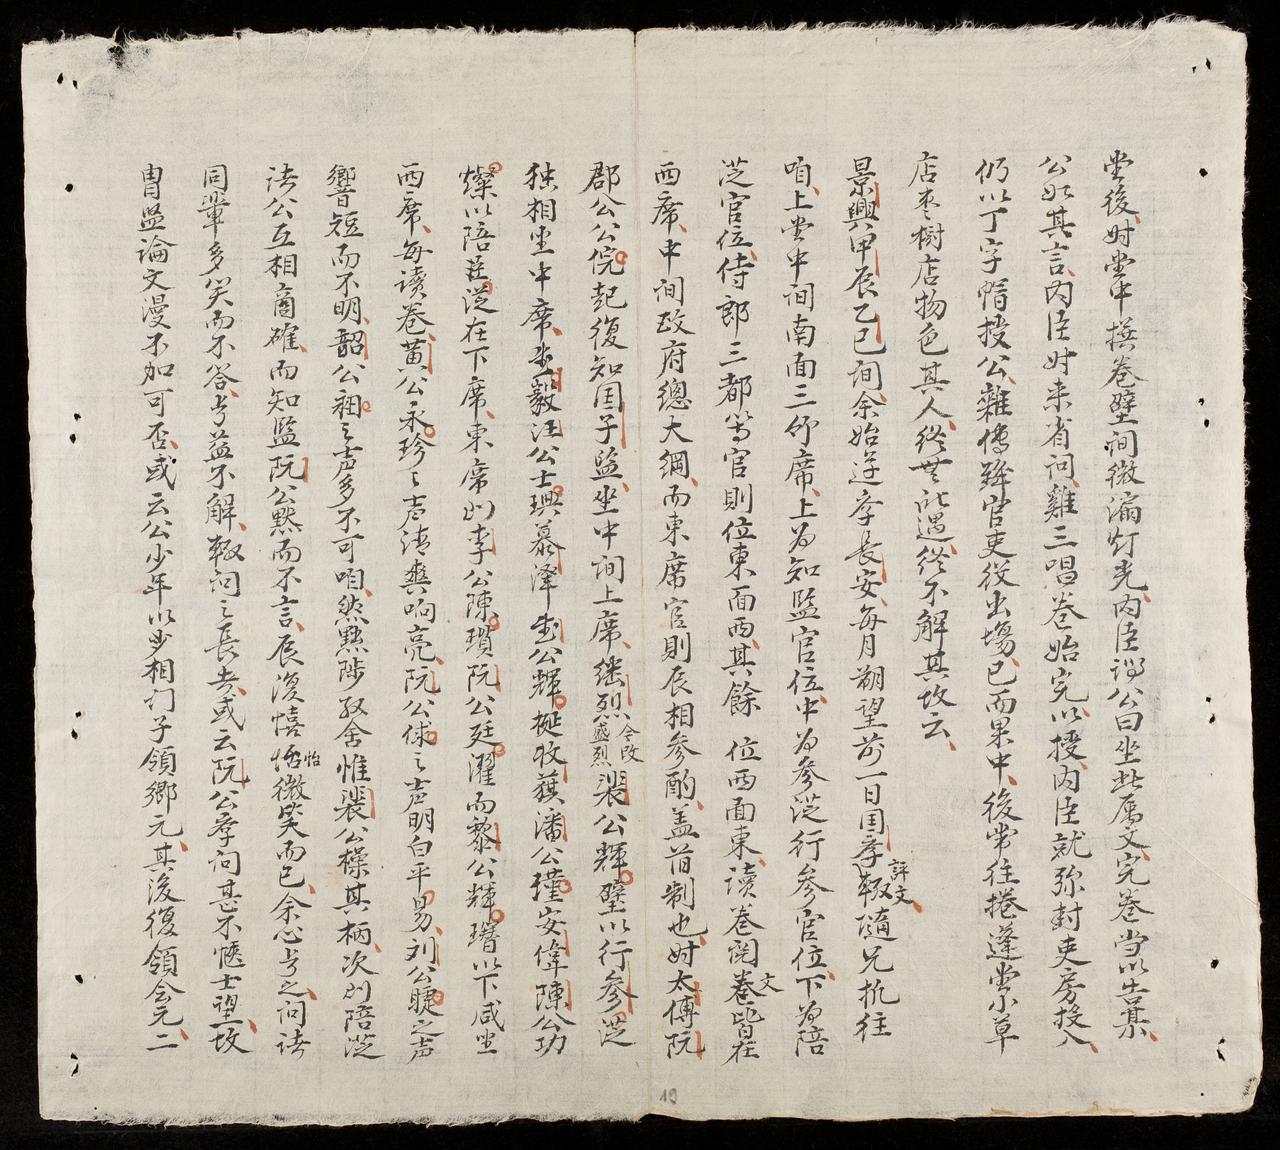 堂後、时堂中撰卷壁间微漏灯光、内臣謂公曰坐此属文完卷当以告某、
公如其言、内臣时来省问、雞三唱卷始完、以授、内臣就弥封吏房投入、
仍以丁字帽授公、雜傅舁官吏役出場、已而果中、後常往捲蓬堂小草
店枣樹店物色其人、終世此遇、終不解其故云、
景興甲辰乙巳间、余始逰孝長安、每月朔望前一日囯孝評文、輙隨兄抗往
咱、上堂中间南面三行席、上为知監官位、中为参涖行参官位、下为陪
涖官位、侍郎三都等官則位東面西、其餘位西面東、读卷阅卷文皆在
西席、中间政府總大綱、而東席官則辰相参酌、盖前制也、时太傅阮
郡公公俒起復知囯子監、坐中间上席、继烈今改盛烈裴公輝璧以行参涖
独相坐中席、黄毅汪公士琠慕泽武公輝梴收蔟潘公瑾安偉陳公功
燦以陪莅涖在下席、東席則李公陳瓚阮公廷濯而黎公輝瑨以下咸坐
西席、每读卷、黄公永珍之声清爽响亮、阮公俅之声明白平易、刘公睫之声
響短而不明、韶公祵之声多不可咱、然黙陟取舍惟裴公操其柄、次則陪涖
诸公互相商確、而知監阮公黙而不言、辰復憘恬怡微笑而已、余心兮之、问诸
同輩多笑而不答、兮益不解、輙问之長者、或云阮公孝问甚不愜士望、故
胄监論文漫不加可否、或云公少年以歩相门子領鄉元、其後復領会元、二
19